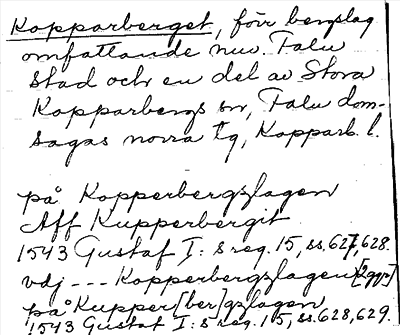 Kopparberget, förr bergslag
omfattande nuv. Falu
stad och en del av Stora
Kopparbergs sn, Falu dom-
sagas norra tg, Kopparb. l.
på Kopperbergzlagen
Aff Kupperbergit
1543 Gustaf I:s reg. 15, ss. 627, 628.
vdj --- Kopperbergzlagen [2ggr]
på Kupper[ber]gzlagen
1543 Gustaf I:s reg. 15, ss. 628, 629.